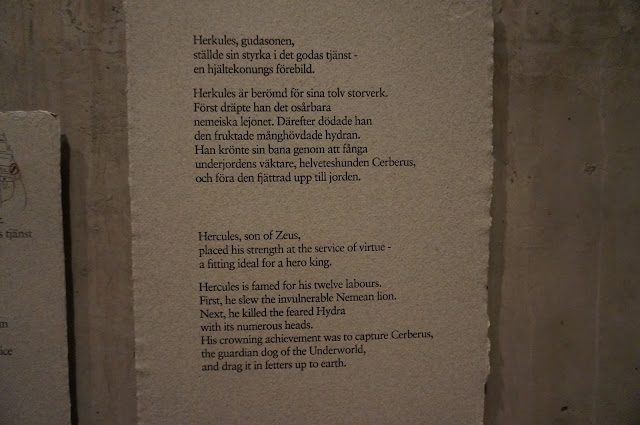 Herkules, gudasonen,
ställde sin styrka i det godas tjänst -
en hjältekonungs förebild.
Herkules är berömd för sina tolv storverk.
Först dräpte han det osårbara
nemeiska lejonet. Därefter dödade han
den fruktade månghövdade hydran.
Han krönte sin bana genom att fånga
underjordens väktare, helveteshunden Cerberus,
och föra den fjättrad upp till jorden.
Hercules, son of Zeus,
placed his strength at the service of virtue -
a fitting ideal for a hero king.
Hercules is famed for his twelve labours.
First, he slew the invulnerable Nemean lion.
Next, he killed the feared Hydra
with its numerous heads.
His crowning achievement was to capture Cerberus,
the guardian dog of the Underworld,
and drag it in fetters up to earth.
tjänst